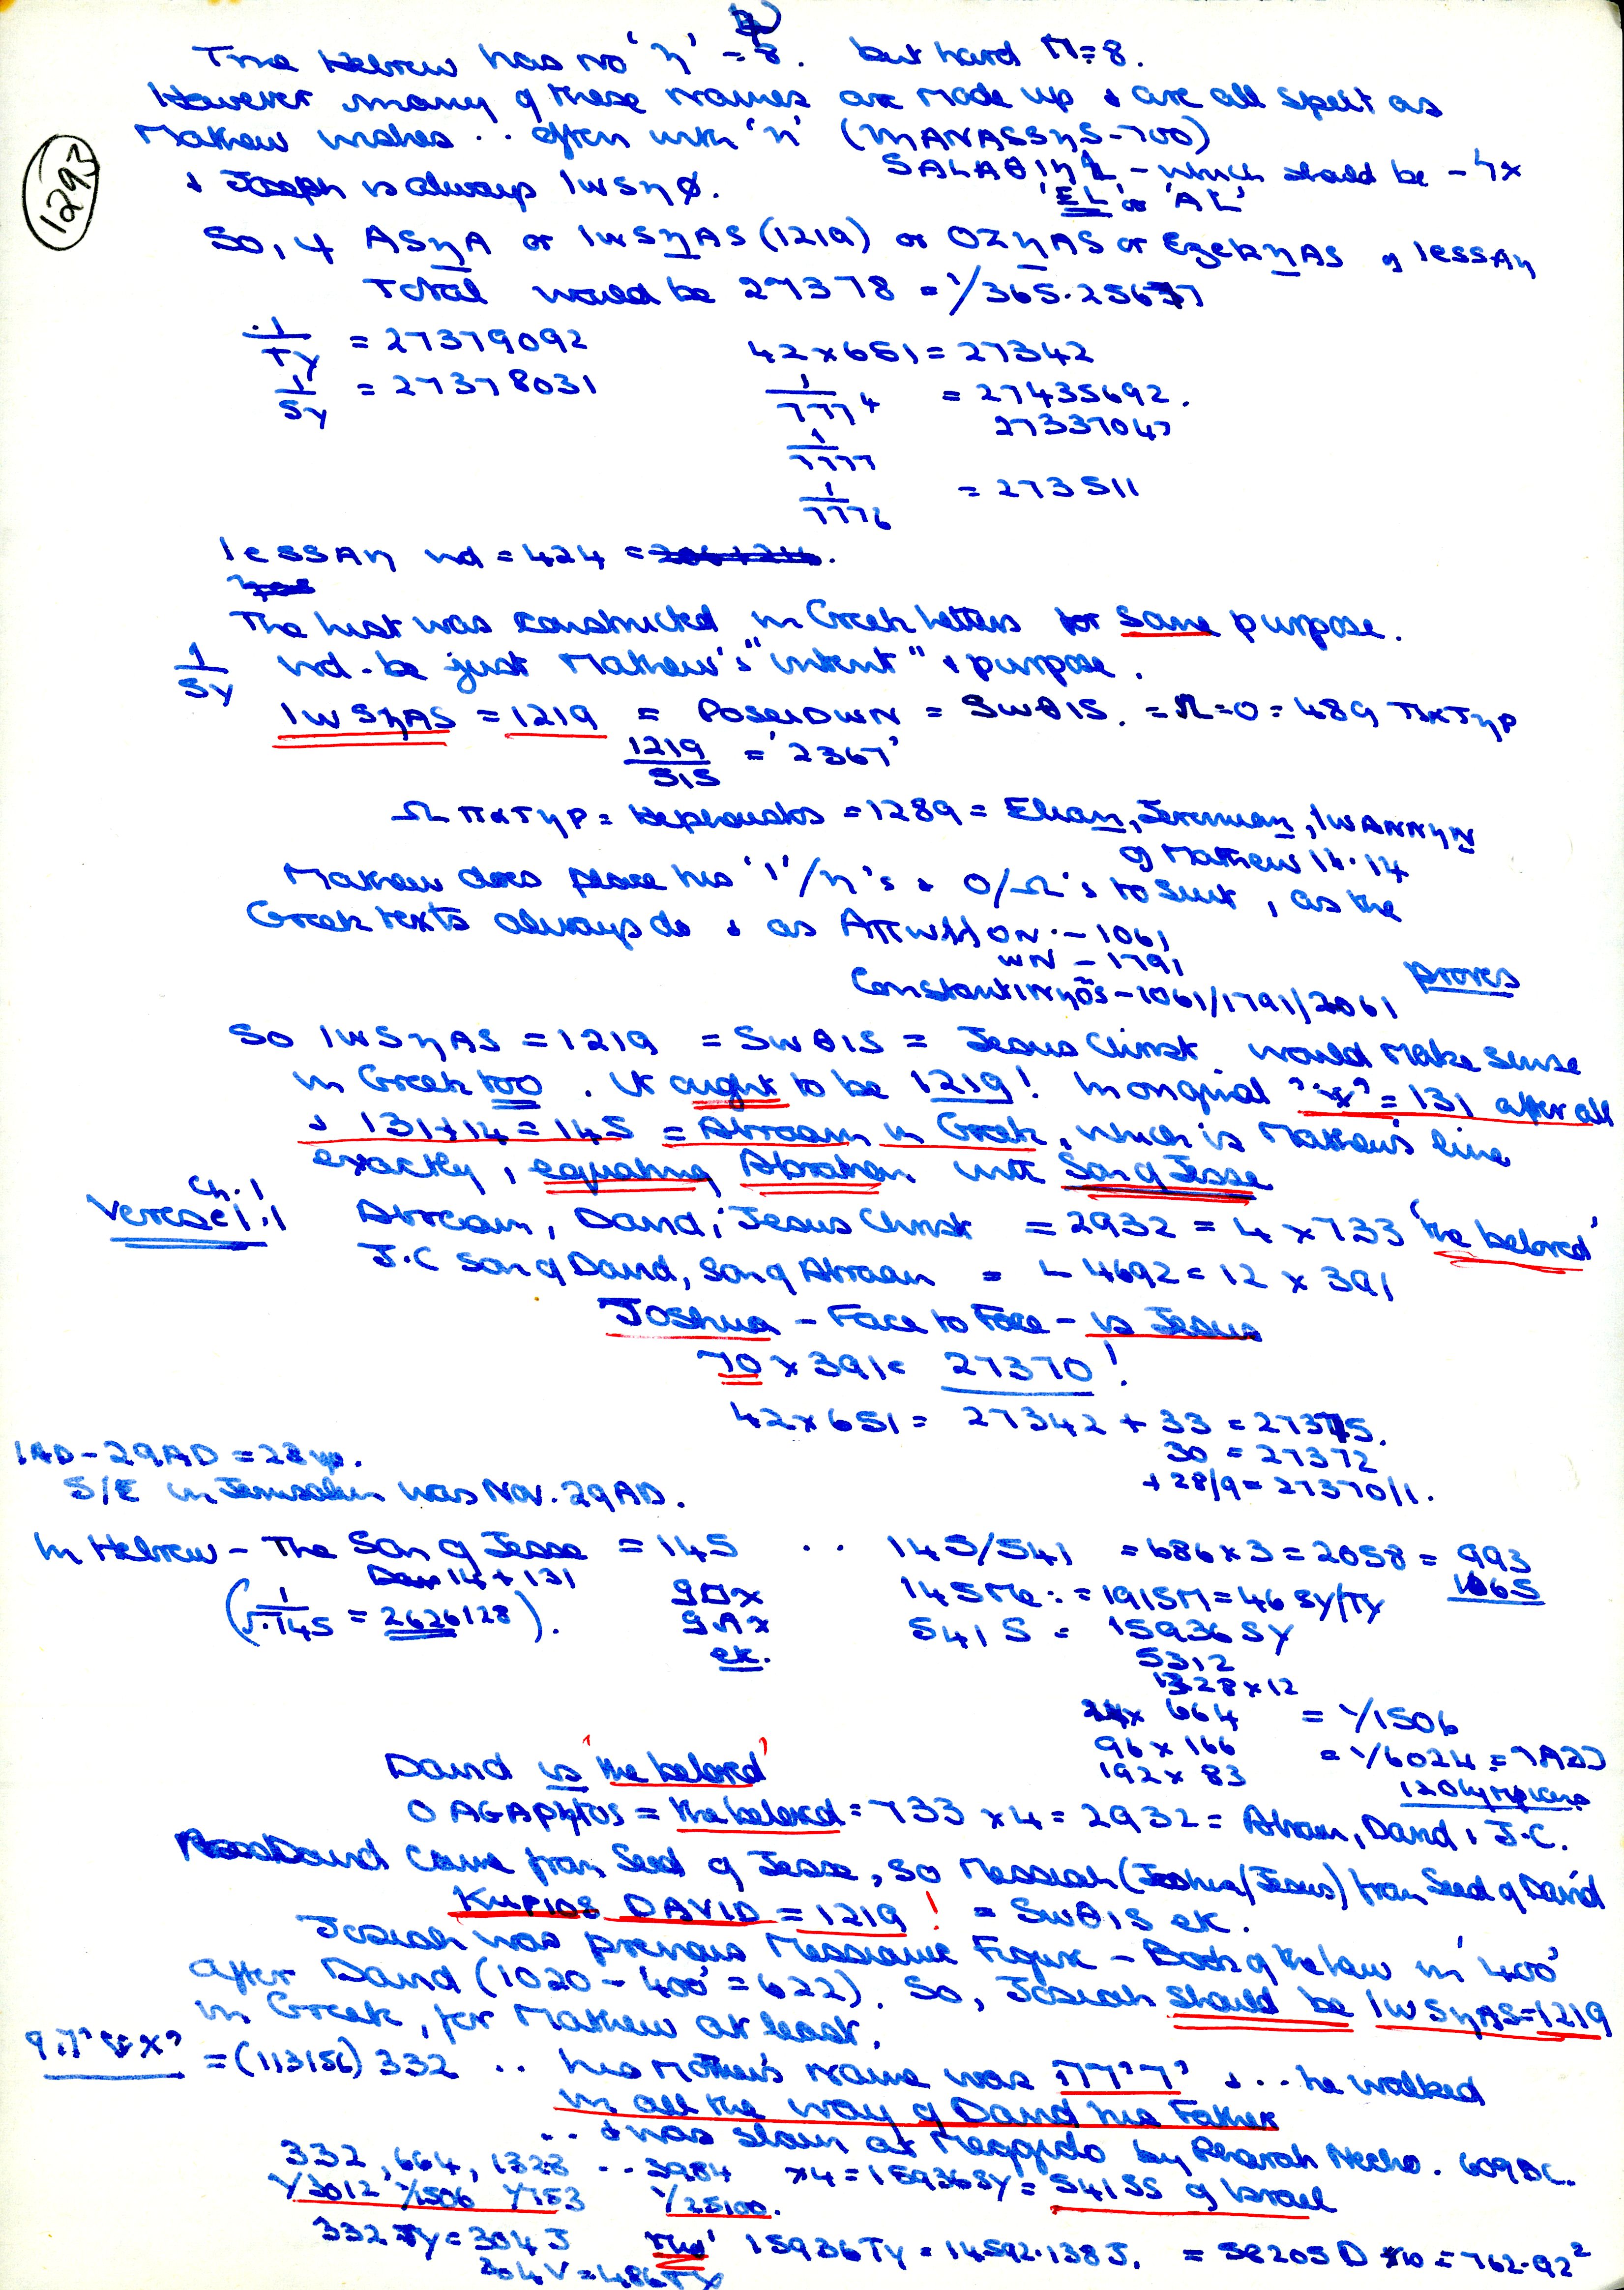 1293
The Hebrew has no 'η' = 8. but hard Π = 8.
However many of these names are made up & are all spelt as
Mathew wishes .. often with 'η' (MANASSηS - 700)
& Joseph is always IWSηØ.
SALAθIηL - which should be
'EL' or 'AL'
So, if ASηA or IWSηAS (1219) or OZηAS or EzekηAS or IESSAη
Total would be 27378 = 1/365.25677
1/TY = 27379092
1/SY = 27378031
42 x 651 = 27342
= 27435692.
27337047
1/7777
1/7776 = 273511
IESSAη wd = 424 =
The list was constructed in Greek letters for same purpose.
1/SY wd. be just Mathew's "intent" & purpose.
IWSηAS = 1219 = POSEIDWN = SWθIS. = Ω = O = 489 πατηρ
1219/515 = '2367'
Ω πατηρ = = 1289 = Elian, Jeremian, IWANNηN
of Mathew 16.14
Mathew does place his 'I'/η's & O/Ω's to suit, as the
Greek texts always do & as ON - 1061
WN - 1791
ConstantinηOS - 1061/1791/2061 proves
So IWSηAS = 1219 = SWθIS = Jesus Christ would make sense
in Greek too. It ought to be 1219! In original = 131 after all
& 131 + 14 = 145 = Abraam in Greek, which is Mathew's line
exactly, equating Abraham with Son of Jesse
Ch. 1
Verse 1.1 Abraam, David, Jesus Christ = 2932 = 4 x 733 'the beloved'
J.C son of David, son of Abraam = 4692 = 12 x 391
Joshua - Face to Face - is Jesus
70 x 391 = 27370!
42 x 651 = 27342 + 33 = 27375.
30 = 27372
+ 28/9 = 27370/1.
1AD - 29AD = 28 yr.
S/E in Jerusalem was Nov. 29AD.
In Hebrew - The Son of Jesse = 145 .. 145/541 = 686 x 3 = 2058 = 993
14 + 131
1065
(1/√145 = 2626128).
145 Me: = 1915M = 46 SY/TY
541 S = 15936 SY
5312
1328 x 12
24 x 664 = 1/1506
96 x 166 = 1/6024
192 x 83
12 Olympians
David is 'the beloved'
O AGAPηTOS = the beloved = 733 x 4 = 2932 = Abraam, David & J.C.
David came from Seed of Jesse, so Messiah (Joshua/Jesus) from Seed of David
Kuplos DAVID = 1219! = SWθIS ek.
Josiah was previous Messianic Figure - Book of the law in '400'
after David (1020 - '400' = 622). So, Josiah should be IWSηAS = 1219
in Greek, for Mathew at least.
= (113156) 332 .. his Mother's name was & .. he walked
in all the way of David his Father
.. & was slain at Meggido by Pharoah Necho. 609BC.
332, 664, 1328 .. 3984 x 4 = 15936 SY = 541 SS of Israel
1/3012 1/1506 1/753 1/25100.
332 TY = 304 J
304 V = 486 TY
15936 TY = 14592.138 J. = 58205 D x 10 = 762.92²